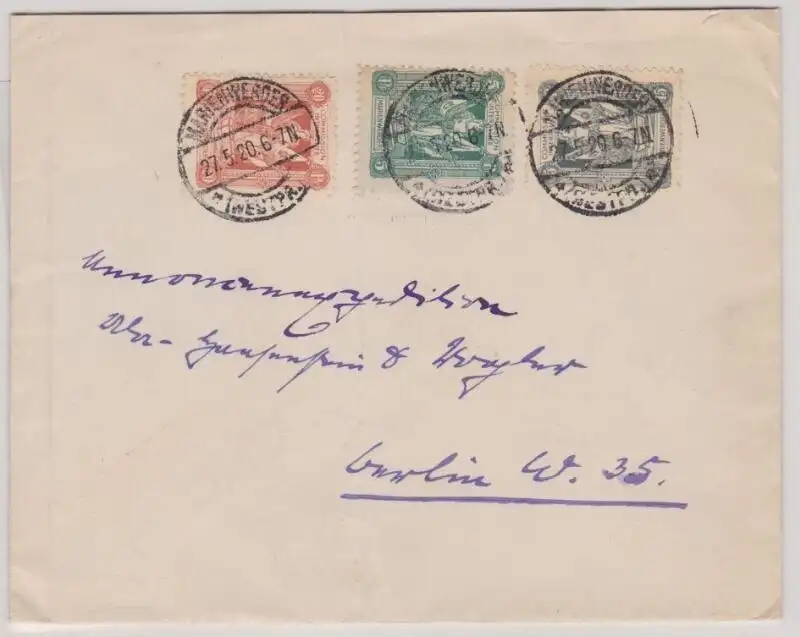 MARIENWERDER
27.5.20.6-7N.
*(WESTPR.)a
MARIENWERDER
5.20.6-7N.
*(WESTPR.)a
MARIENWERDER
27.5.20.6-7N.
*(WESTPR.)a
20
5
COMMISSION
Annoncenexpedition
Haasenstein & Vogler
Berlin W. 35.